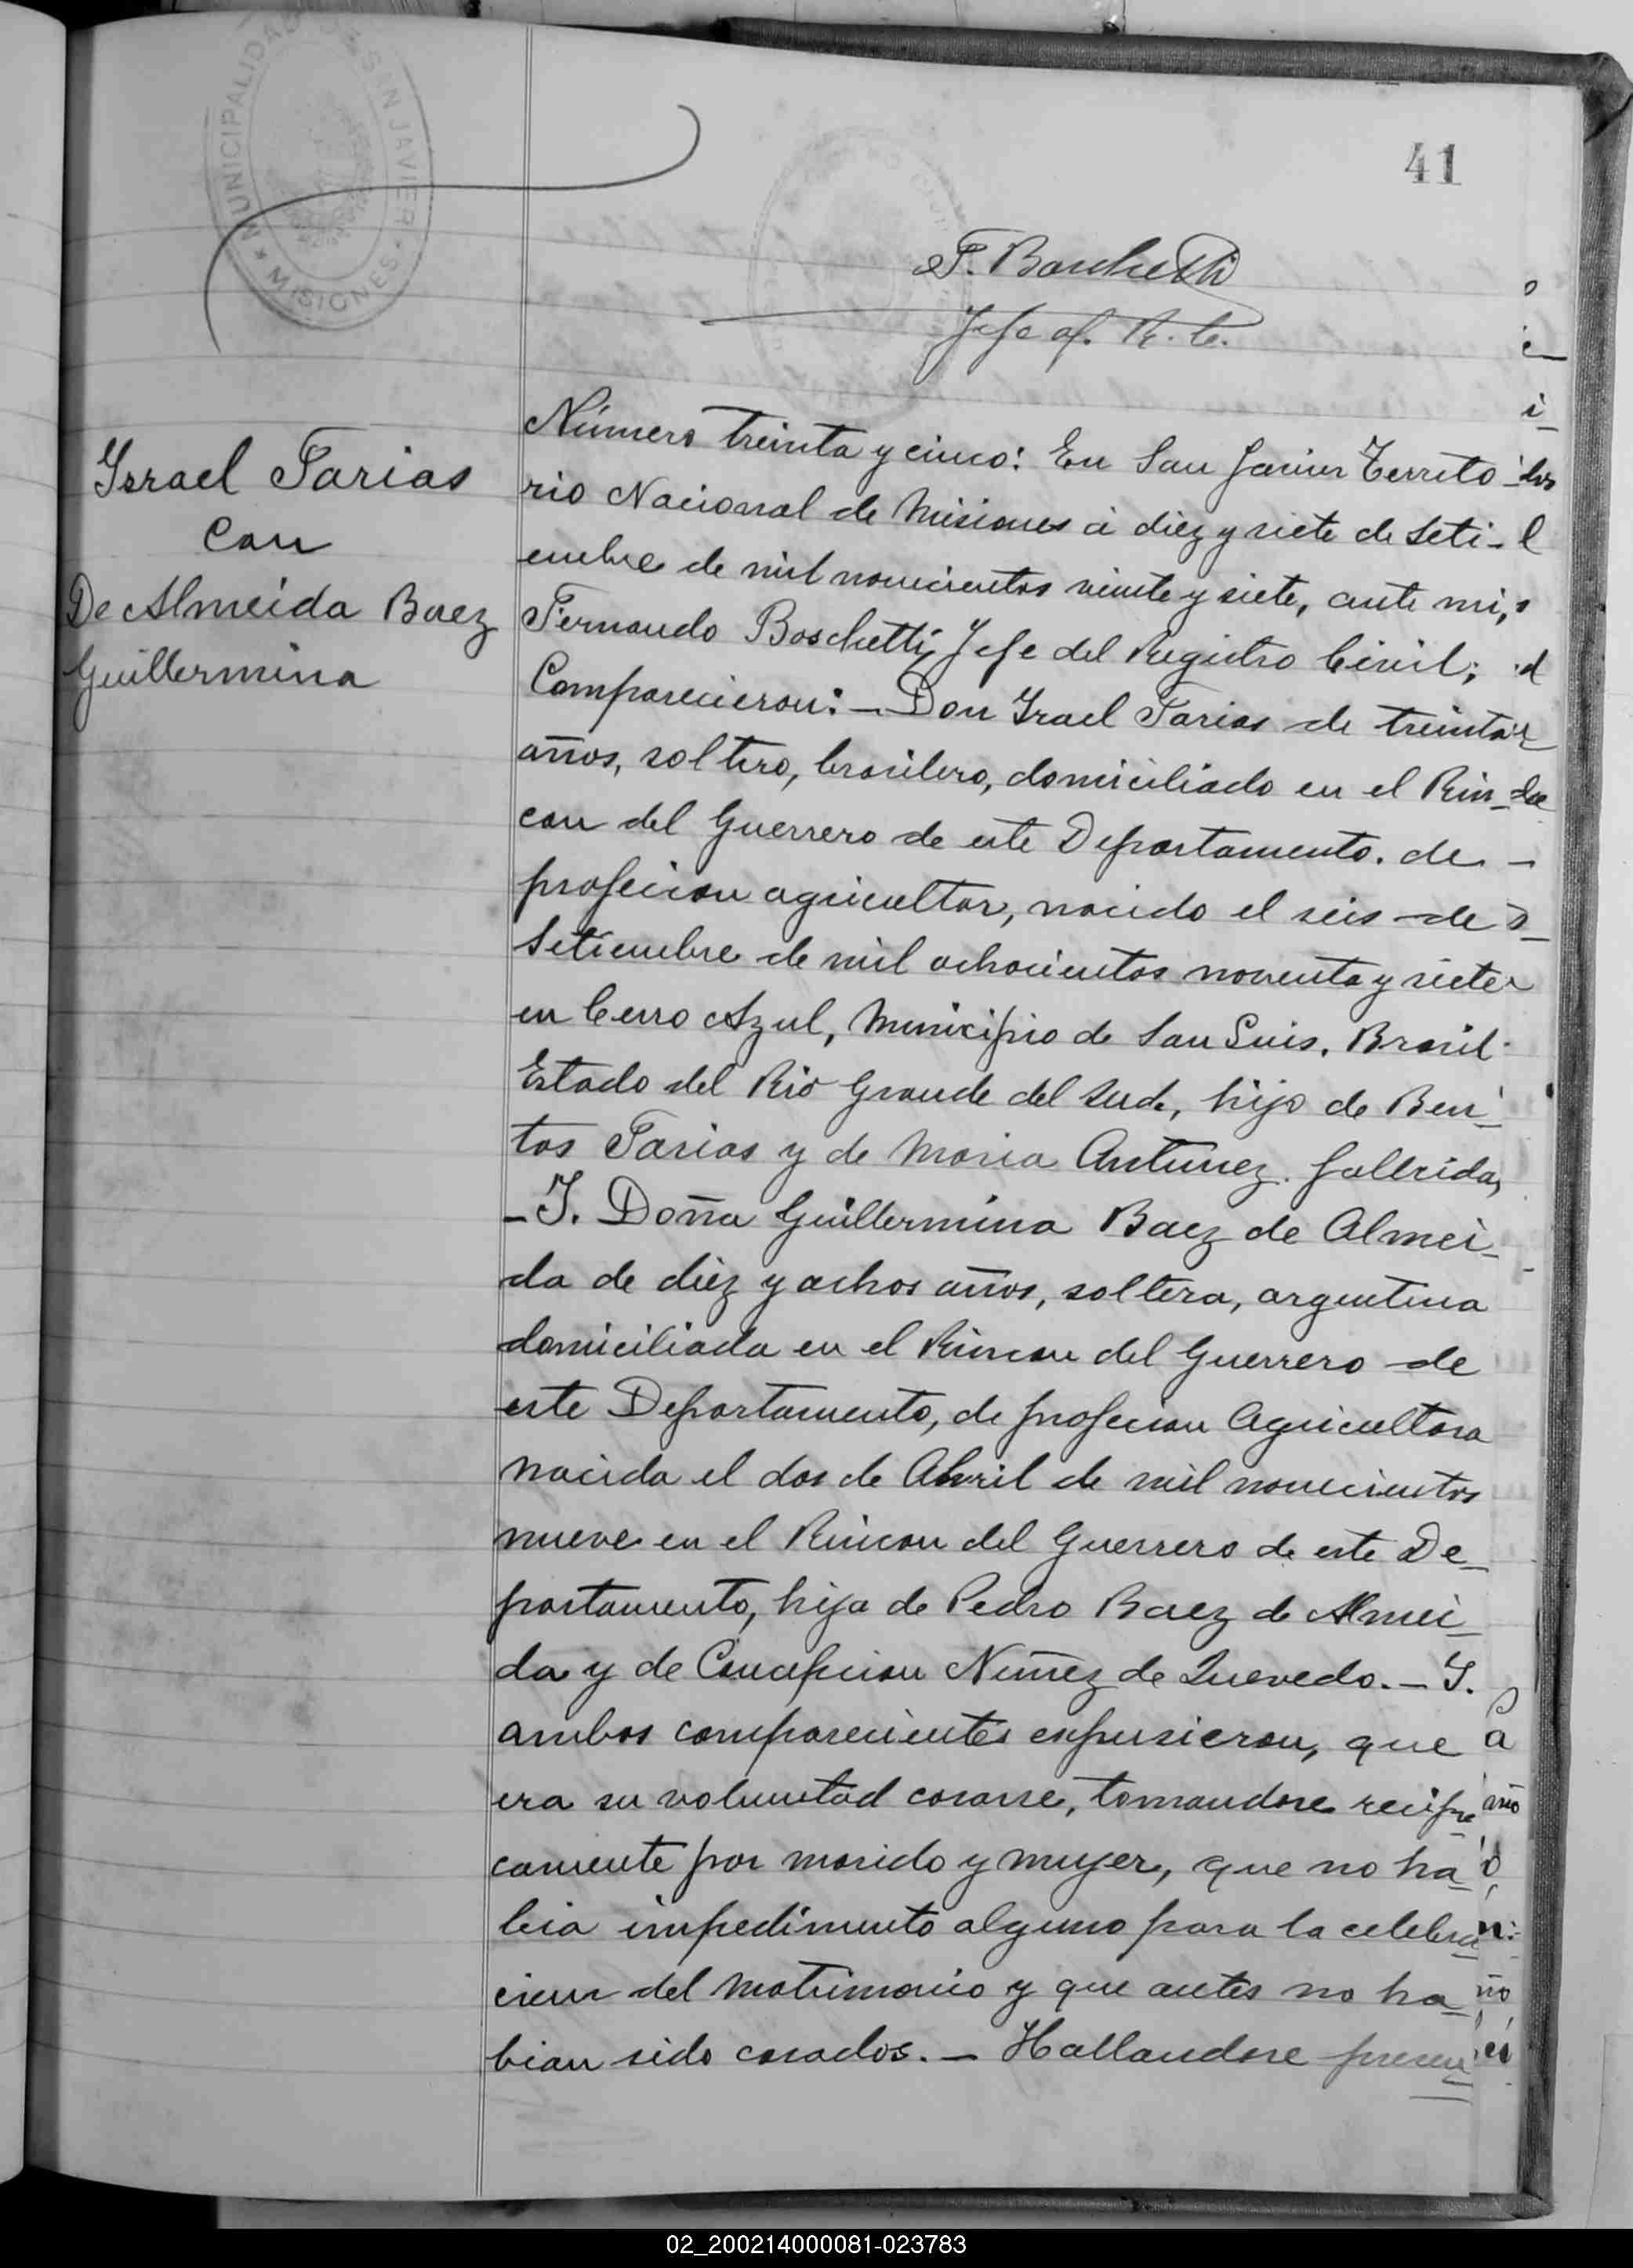 MUNICIPALIDAD DE SAN JAVIER
* MISIONES *
41
F. Boschetti
Jefe of. R. C.
Ysrael Farias
con
De Almeida Baez
Guillermina
Número treinta y cinco: En San Javier Territo-
rio Nacional de Misiones á diez y siete de Seti-
embre de mil novecientos veinte y siete, ante mi,
Fernando Boschetti, Jefe del Registro Civil;
Comparecieron: – Don Yrael Farias de treinta
años, soltero, brasilero, domiciliado en el Rin-
con del Guerrero de este Departamento. de
profecion agricultor, nacido el seis de
Setiembre de mil ochocientos noventa y siete
en Cerro Azul, Municipio de San Luis. Brasil
Estado del Rio Grande del Sud, hijo de Ben-
tos Farias y de Maria Antunez. fallecida,
– Y. Doña Guillermina Baez de Almei-
da de diez y ochos años, soltera, argentina
domiciliada en el Rincon del Guerrero de
este Departamento, de profecion Agricultora
nacida el dos de Abril de mil novecientos
nueve en el Rincon del Guerrero de este De-
partamento, hija de Pedro Baez de Almei-
da y de Concepcion Nuñez de Quevedo. – Y.
ambos comparecientes expusieron, que
era su voluntad casarse, tomandose recipro
camente por marido y mujer, que no ha-
bia impedimento alguno para la celebra-
cion del matrimonio y que antes no ha-
bian sido casados. – Hallandose presen-
02_200214000081-023783